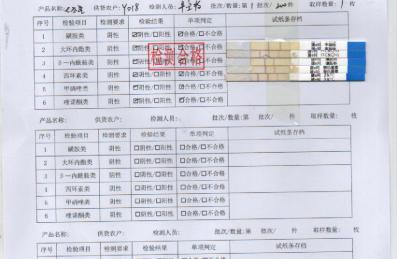 产品名称: 供货农户: Y018 检测人员: 批次/数量:第 1 批次/ 件 取样数量: 1 枚
序号 检验项目 检测要求 检验结果 单项判定 试纸条存档
1 磺胺类 阴性 ☑阴性/☐阳性 ☑合格/☐不合格
2 大环内酯类 阴性 ☑阴性/☐阳性 ☑合格/☐不合格
3 β-内酰胺类 阴性 ☑阴性/☐阳性 ☑合格/☐不合格
4 四环素类 阴性 ☑阴性/☐阳性 ☑合格/☐不合格
5 甲硝唑类 阴性 ☑阴性/☐阳性 ☑合格/☐不合格
6 喹诺酮类 阴性 ☑阴性/☐阳性 ☑合格/☐不合格
检测合格
产品名称: 供货农户: 检测人员: 批次/数量:第 批次/ 件 取样数量: 枚
序号 检验项目 检测要求 检验结果 单项判定 试纸条存档
1 磺胺类 阴性 ☐阴性/☐阳性 ☐合格/☐不合格
2 大环内酯类 阴性 ☐阴性/☐阳性 ☐合格/☐不合格
3 β-内酰胺类 阴性 ☐阴性/☐阳性 ☐合格/☐不合格
4 四环素类 阴性 ☐阴性/☐阳性 ☐合格/☐不合格
5 甲硝唑类 阴性 ☐阴性/☐阳性 ☐合格/☐不合格
6 喹诺酮类 阴性 ☐阴性/☐阳性 ☐合格/☐不合格
产品名称: 供货农户: 检测人员: 批次/数量:第 批次/ 件 取样数量: 枚
序号 检验项目 检测要求 检验结果 单项判定 试纸条存档